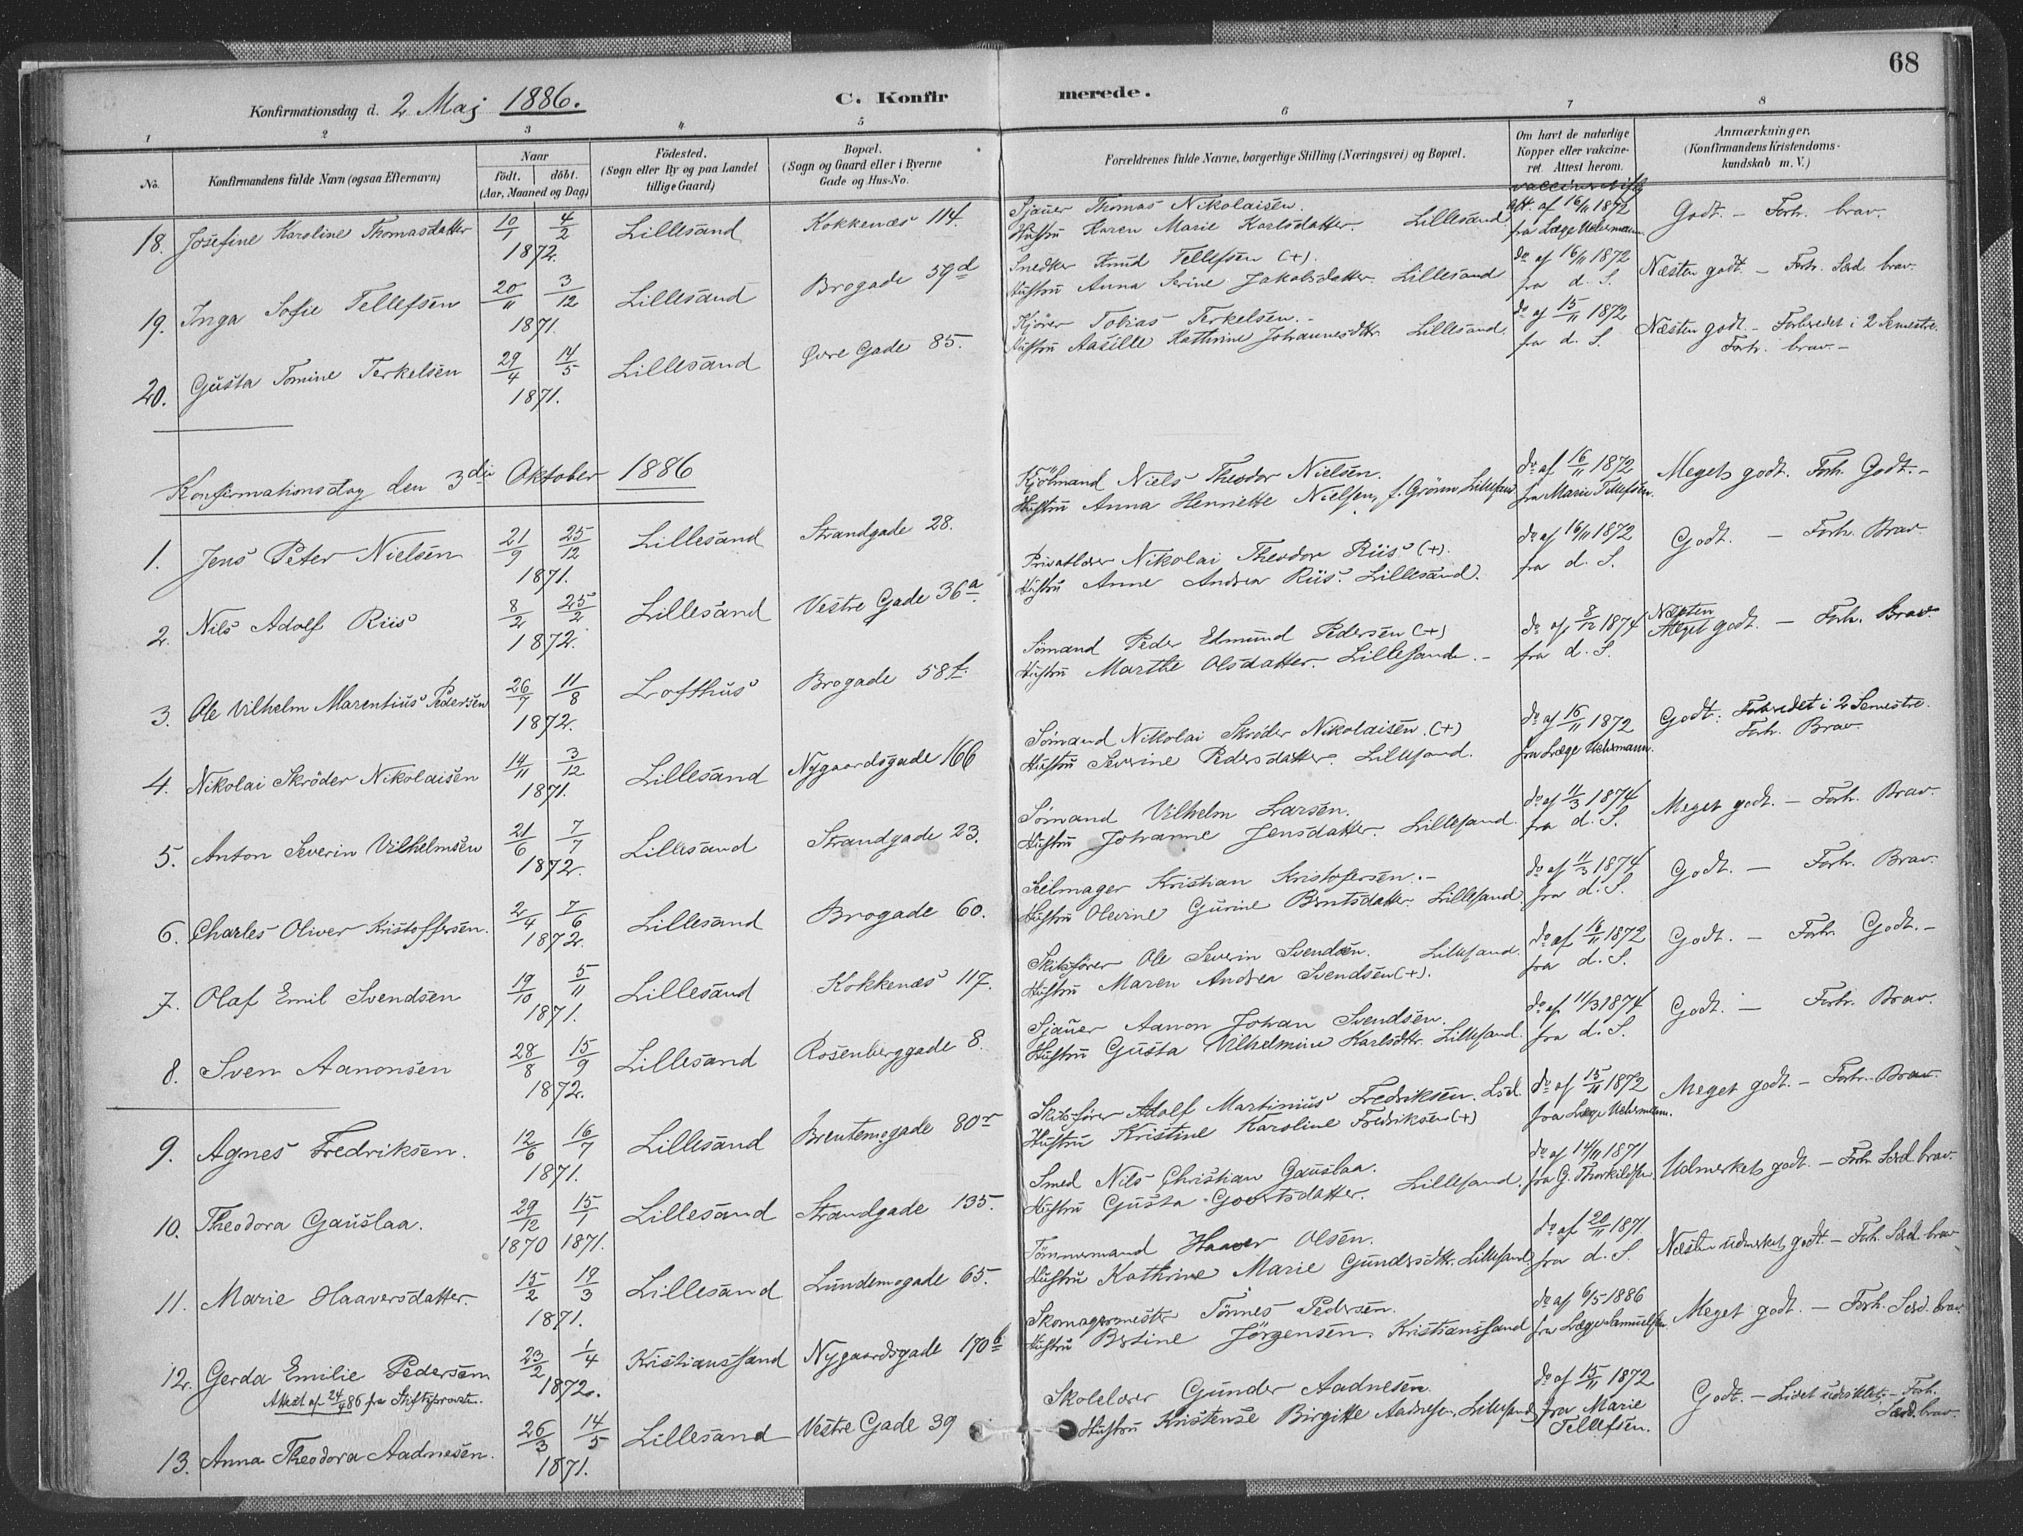 68
Konfirmationsdag d. 2 Maj 1886.
C. Konfirmerede.
1 2 3 4 5 6 7 8
No.
Konfirmandens fulde Navn (ogsaa Efternavn)
Naar
födt. döbt.
(Aar, Maaned og Dag)
Födested.
(Sogn eller By og paa Landet
tillige Gaard)
Bopæl.
(Sogn og Gaard eller i Byerne
Gade og Hus-No.
Forældrenes fulde Navne, borgerlige Stilling (Næringsvei) og Bopæl.
Om havt de naturlige
Kopper eller vakcine-
ret Attest herom.
Anmærkninger.
(Konfirmandens Kristendoms-
kundskab m. V.)
18. Josefine Karoline Thomasdatter 10/1 4/2 1872. Lillesand Kokkenæs 114.
Sjauer Thomas Nikolaisen.
Hustru Karen Marie Karlsdatter. Lillesand
att. af 16/11 1872
fra Læge Uchermann.
Godt. - Forh. brav.
19. Inga Sofie Tellefsen 20/11 3/12 1871. Lillesand Brogade 59d
Snedker Knud Tellefsen (+).
Hustru Anna Serine Jakobsdatter. Lillesand
do af 16/11 1872
fra d. S.
Næsten godt. - Forh. Særd. brav.
20. Gusta Tomine Terkelsen 29/4 14/5 1871. Lillesand Øvre Gade 85.
Kjører Tobias Terkelsen. -
Hustru Aasille Kathrine Johannesdtr. Lillesand.
do af 15/11 1872
fra d. S.
Næsten godt. - Forberedet i 2 Semestre.
Forh. brav. -
Konfirmationsdag den 3die Oktober 1886
1. Jens Peter Nielsen 21/9 25/12 1871. Lillesand Strandgade 28.
Kjölmand Niels Theodor Nielsen.
Hustru Anna Henriette Nielsen, f. Grönn Lillesand
do af 16/11 1872
fra Marie Tellefsen.
Meget godt. Forh. Godt. -
2. Nils Adolf Riis 8/2 25/2 1872. Lillesand Vestre Gade 36a.
Privatlærer Nikolai Theodor Riis (+).
Hustru Anne Andrea Riis. Lillesand.
do af 16/11 1872
fra d. S.
Godt. - Forh. Brav.
3. Ole Vilhelm Marentius Pedersen 26/7 11/8 1872. Lofthus Brogade 58f.
Sømand Peder Edmund Pedersen (+)
Hustru Marthe Olsdatter. Lillesand. -
do af 8/12 1874
fra d. S.
Næsten
Meget godt. - Forh. Brav.
4. Nikolai Skröder Nikolaisen 14/11 3/12 1871. Lillesand Nygaardsgade 166
Sømand Nikolai Skröder Nikolaisen. (+)
Hustru Severine Pedersdatter. Lillesand.
do af 16/11 1872
fra Læge Uchermann.
Godt. Forberedet i 2 Semestre.
Forh. Brav.
5. Anton Severin Vilhelmsen 21/6 7/7 1872. Lillesand Strandgade 23.
Sømand Vilhelm Larsen.
Hustru Johanne Jensdatter. Lillesand.
do af 11/3 1874
fra d. S.
Meget godt. - Forh. Brav.
6. Charles Oliver Kristoffersen. 2/4 7/6 1872. Lillesand Brogade 60.
Seilmager Kristian Kristofersen. -
Hustru Olevine Gurine Berntsdatter. Lillesand
do af 11/3 1874
fra d. S.
Godt. - Forh. Brav.
7. Olaf Emil Svendsen 19/10 5/11 1871. Lillesand Kokkenæs 117.
Skibsfører Ole Severin Svendsen. Lillesand.
Hustru Maren Andrea Svendsen (+).
do af 16/11 1872
fra d. S.
Godt. - Forh. Godt. -
8. Sven Aanonsen 28/8 15/9 1872. Lillesand Rosenberggade 8.
Sjauer Aanon Johan Svendsen.
Hustru Gusta Vilhelmine Karlsdtr. Lillesand.
do af 11/3 1874
fra d. S.
Godt. - Forh. Brav.
9. Agnes Fredriksen. 12/6 16/7 1871. Lillesand Brentemogade 80
Skibsfører Adolf Martinius Fredriksen. L.sd.
Hustru Kristine Karoline Fredriksen (+)
do af 15/11 1872
fra Læge Uchermann.
Meget godt. - Forh. Brav
10. Theodora Gauslaa. 29/12 15/1 1870 1871. Lillesand Strandgade 135.
Smed Nils Christian Gauslaa.
Hustru Gusta Goertsdatter. Lillesand.
do af 14/11 1871
fra G. Thorkildsen.
Udmerket godt. - Forh. Særd. brav.
11. Marie Haaversdatter. 15/2 19/3 1871. Lillesand Lundemogade 65.
Tömmermand Haaver Olsen.
Hustru Kathrine Marie Gundersdtr. Lillesand
do af 20/11 1871
fra d. S.
Næsten udmerket godt. - Forh. Særd. brav
12. Gerda Emilie Pedersen 23/2 1/4 1872. Kristianssand Nygaardsgade 170b
Attest af 24/4 86 fra Stiftsprovsten.
Skomagermester Tönnes Pedersen.
Hustru Bertine Jörgensen. Kristianssand
do af 6/5 1886
fra Læge Samuelsen.
Meget godt. - Forh. Særd. brav.
13. Anna Theodora Aadnesen. 26/3 14/5 1871. Lillesand Vestre Gade 39
Skolelærer Gunder Aadnesen.
Hustru Kristense Birgitte Aadnesen, Lillesand
do af 15/11 1872
fra Marie
Tellefsen.
Godt. - Lidet udviklet. - Forh.
Særd. brav.